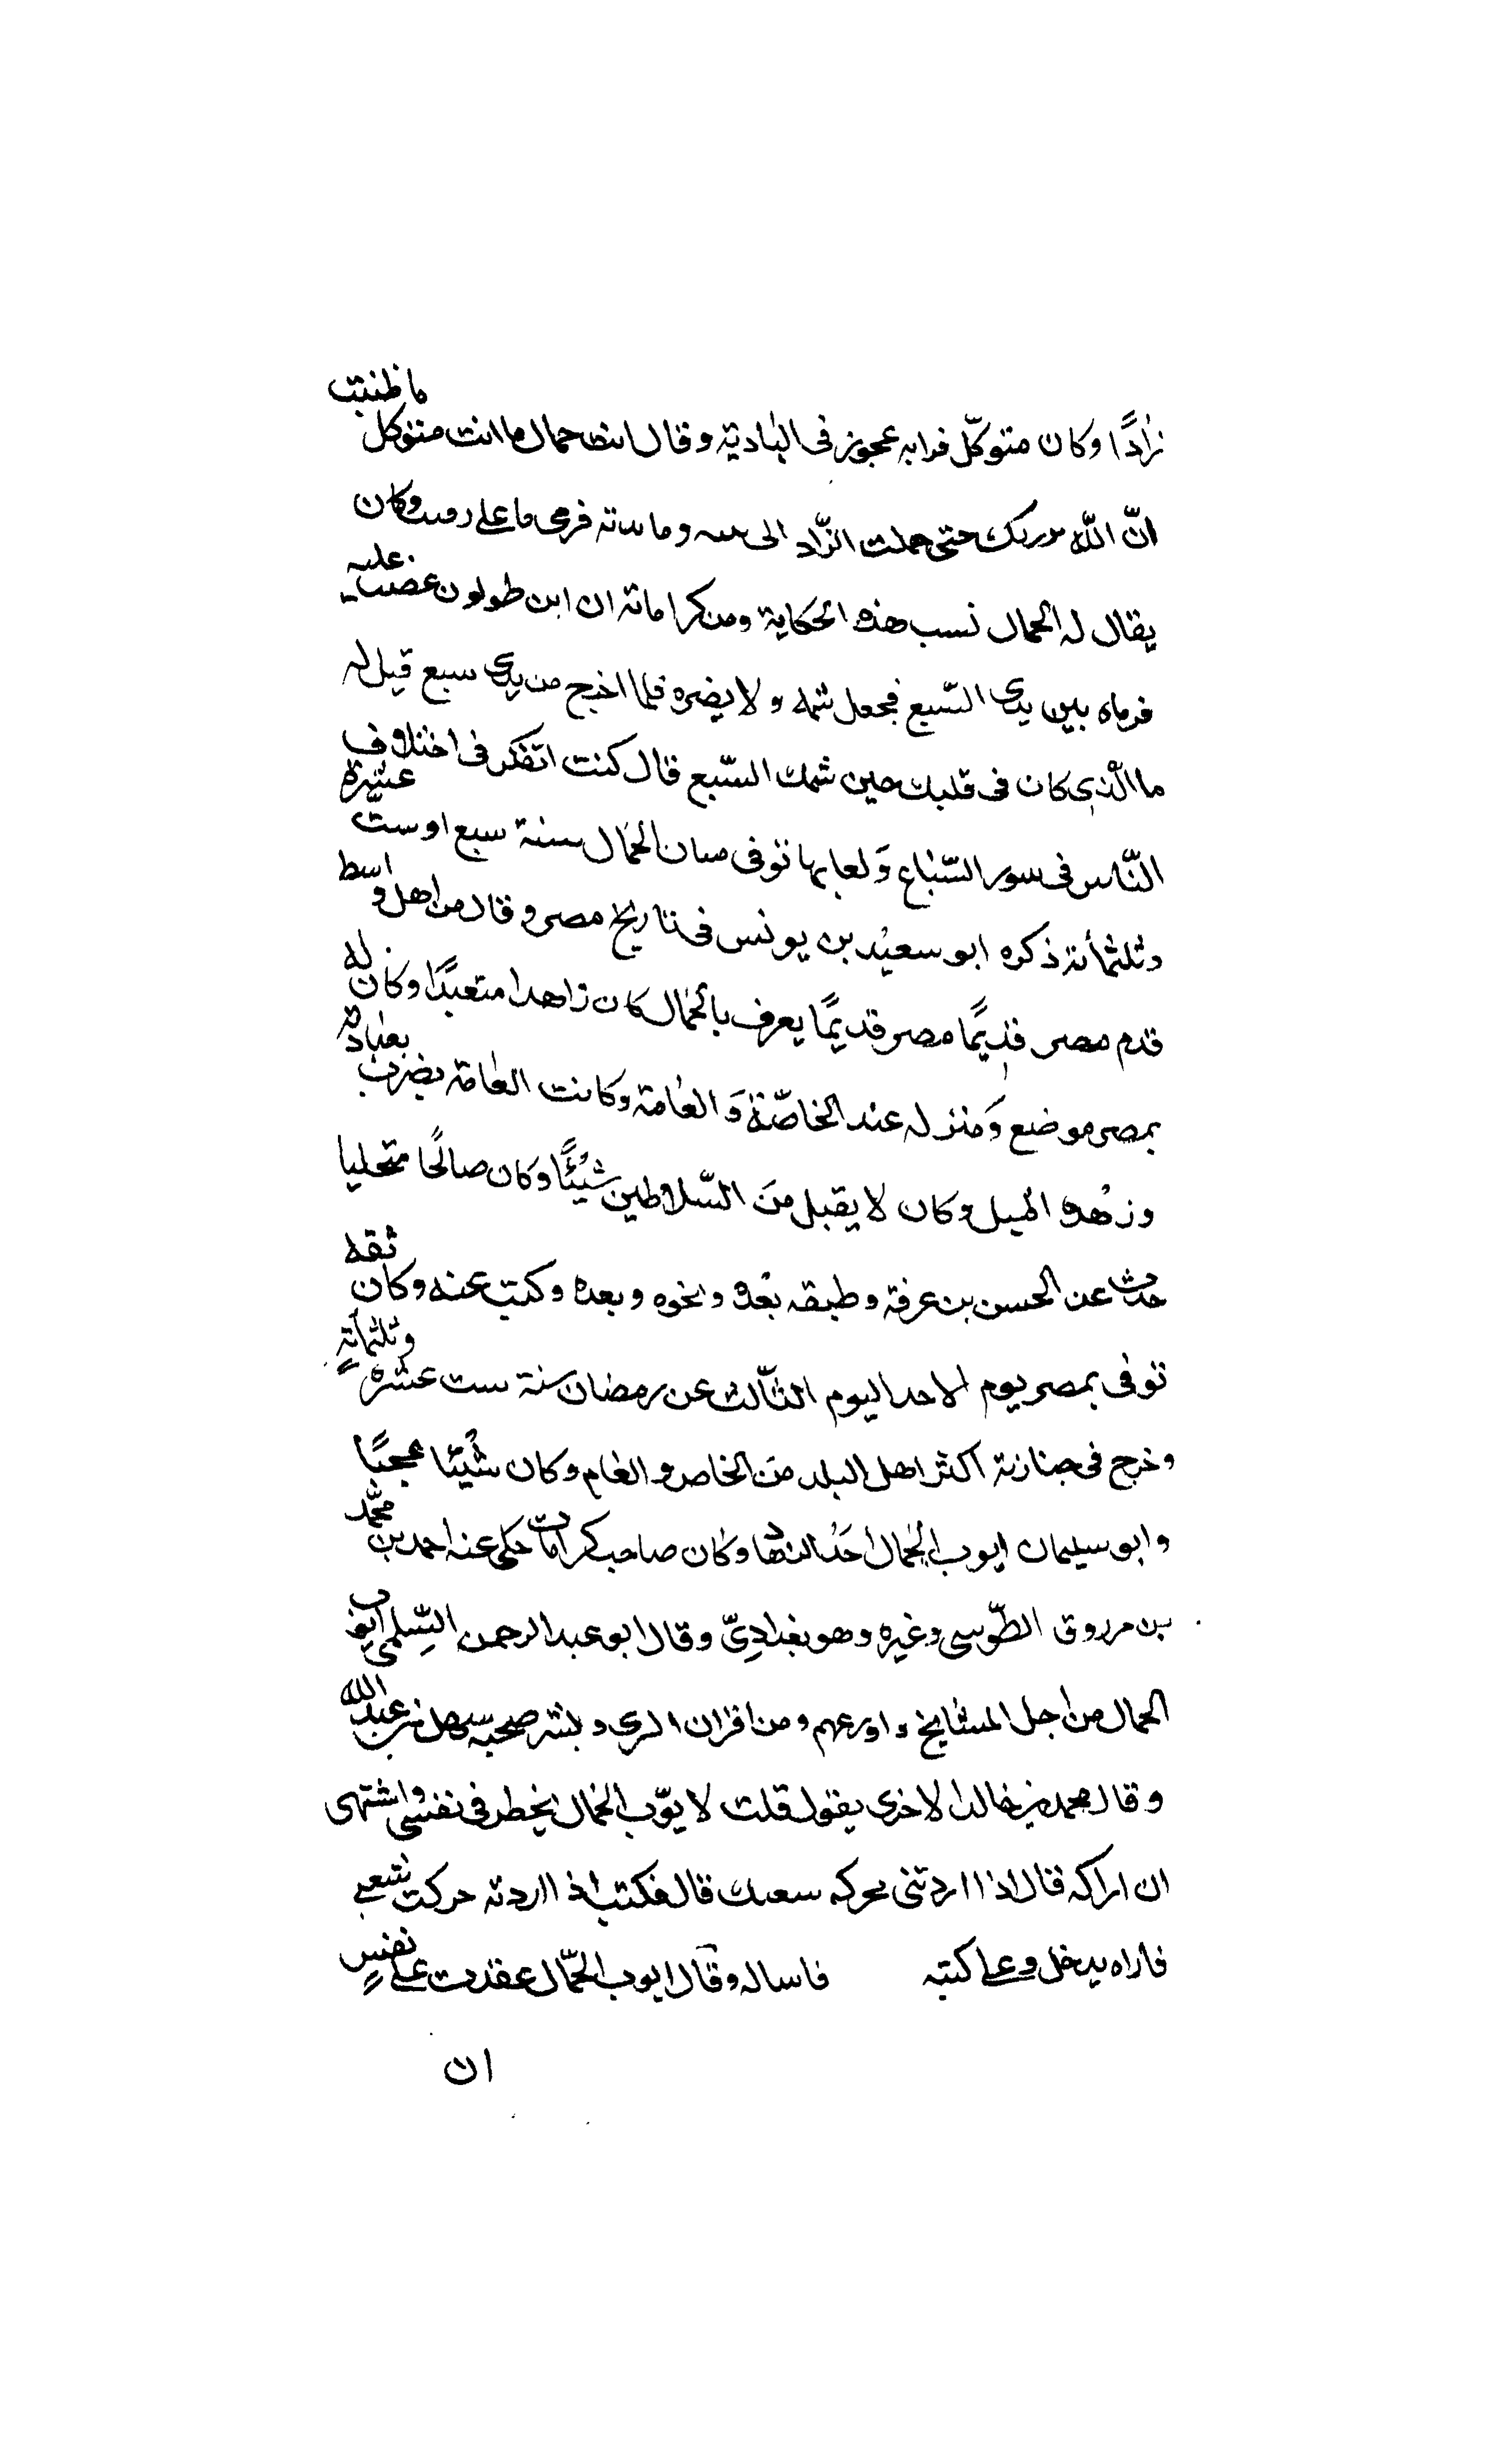 زادًا وكان متوكّل فرابه عجوز فى البادية وقال انت حمال ما انت متوكل ما ظننت
انّ الله يرزقك حتى حملت الزّاد الى فرمى ما على وكان
يقال له الحمال نسب هذه الحكاية ومن كراماته ان ابن طولون غضب عليه
فرماه بين يدى السّبع فجعل شمه ولا يضره فلما اخرج من يدى سبع قيل له
ما الّذى كان فى قلبك حين شمك السّبع قال كنت اتفكر فى اختلاف
النّاس فى سور السّباع وَلعابها توفى بنان الحمال سنة سبع او ستّ عشرة
وثلثمأتة ذكره ابو سعيد بن يونس فى تاريخ مصر وقال من اهل واسط
قدم مصر قديمًا مصر قديمًا يعرف بالحمال كان زاهدا متعبدًا وكان له
بمصر موضع وَمنزله عند الخاصّة وَالعامة وكانت العامة يضرب بعبادة
وزهده الميل وكان لا يقبل منَ السّلاطين شيئًا وكان صالحًا متحليا
حدث عن الحسن بن عرفة وطبقه بعده ونحوه وبعده وكتب عنه وكان ثقه
توفى بمصر يوم الاحد اليوم الثّالث عن رمضان سنة ست عشره وثلثمأتةٍ
وخرج فى جنازته اكثر اهل البلد منَ الخاص والعام وكان شيئا عجبًا
وابو سليمان ايوب الجمال احَدُ الزهاد وكان صاحب كرامات حكى عنه احمد بن محمّد
بن مرروق الطّوسى وغيره وهو بغدادِىّ وقال ابو عبد الرحمن السّلمى ايوب
الحمال من اجل المشايخ واورعهم ومن اقران السرى وبشر صحبه سهل بن عبد الله
وقال محمد بن خالد الاخرى يقول قلت لا يوّب الحمال يخطر فى نفسى واشتهى
ان اراكه قال اذا اردتنى فكتب اذا اردته حركت
فاراه يدخل وعلى كتبه فاساله وقال ايوب الحمّال عقدت على نفسٍ
ان